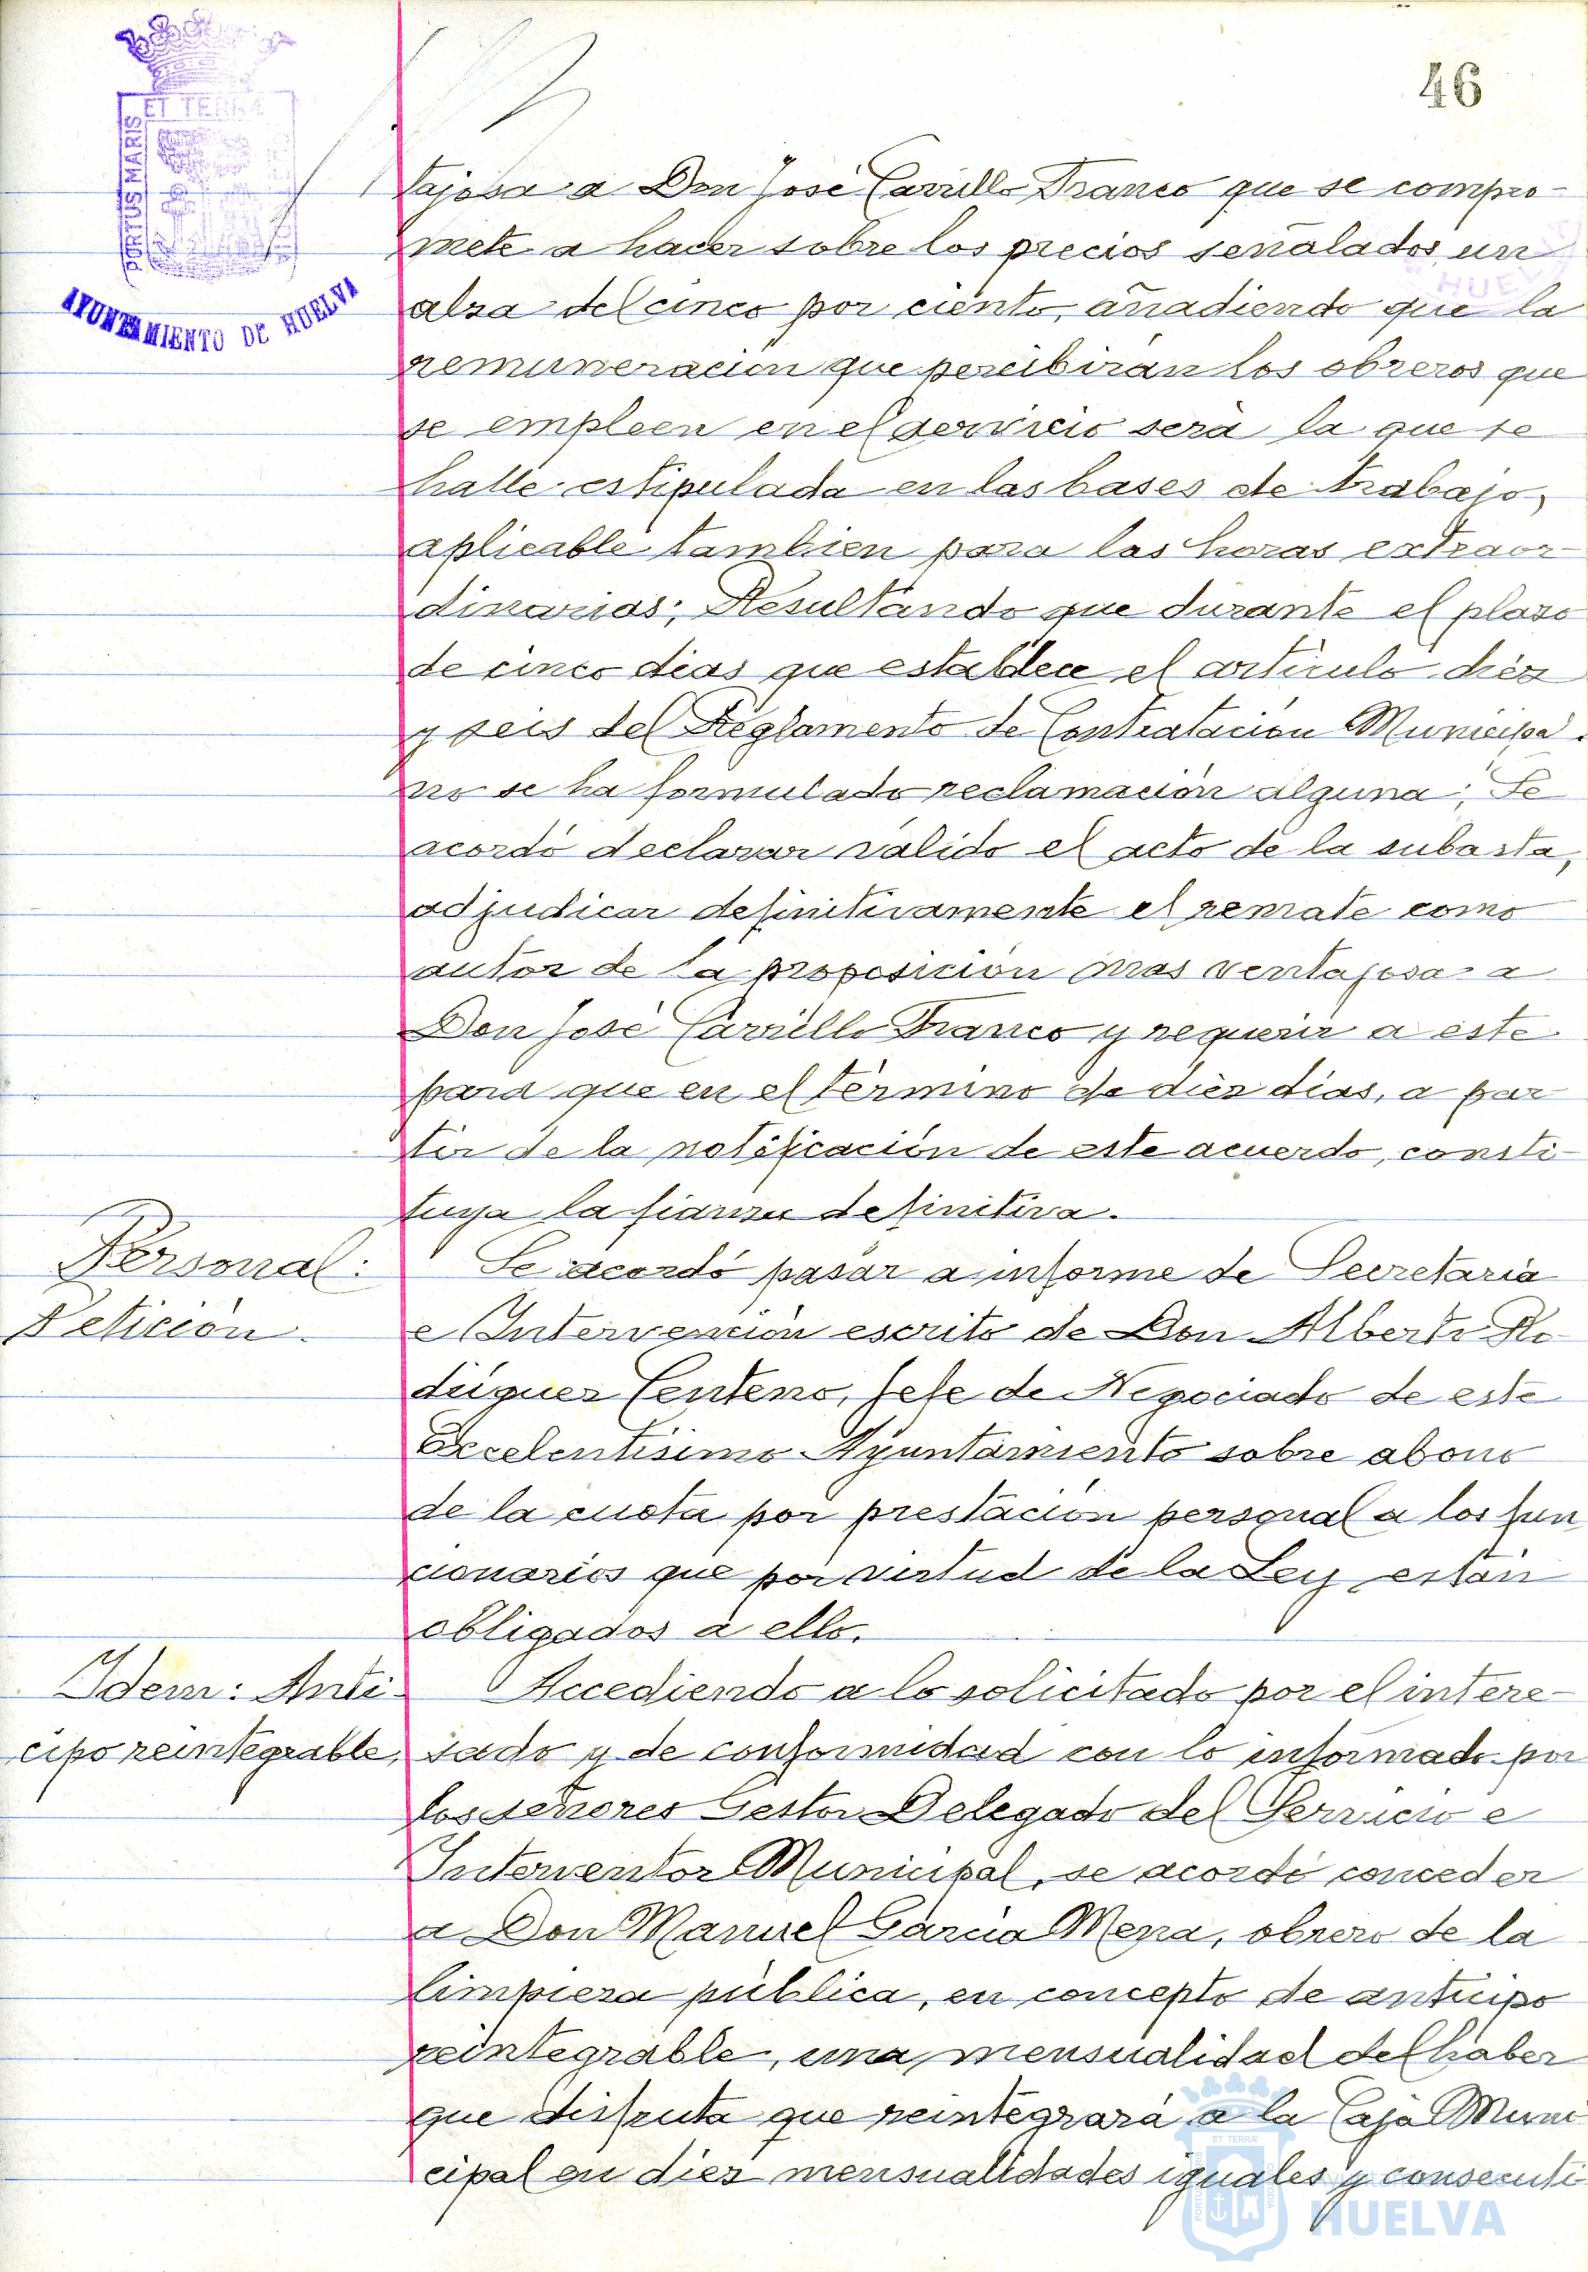 46
ET TERRÆ
PORTUS MARIS
AYUNTAMIENTO DE HUELVA
tajosa a Don José Carrillo Franco que se compro-
mete a hacer sobre los precios señalados un
alza del cinco por ciento, añadiendo que la
remuneración que percibirán los obreros que
se empleen en el servicio será la que se
halle estipulada en las bases de trabajo,
aplicable tambien para las horas extraor-
dinarias; Resultando que durante el plazo
de cinco dias que establece el artículo diez
y seis del Reglamento de Contratación Municipal
no se ha formulado reclamación alguna; Se
acordó declarar válido el acto de la subasta,
adjudicar definitivamente el remate como
autor de la proposición mas ventajosa a
Don José Carrillo Franco y requerir a este
para que en el término de diez días, a par-
tir de la notificación de este acuerdo, consti-
tuya la fianza definitiva.
Personal:
Petición.
Se acordó pasar a informe de Secretaría
e Intervención escrito de Don Alberto Ro-
dríguez Centeno, Jefe de Negociado de este
Excelentísimo Ayuntamiento sobre abono
de la cuota por prestación personal a los fun
cionarios que por virtud de la Ley están
obligados a ello.
Idem: Anti-
cipo reintegrable,
Accediendo a lo solicitado por el intere-
sado y de conformidad con lo informado por
los señores Gestor Delegado del Servicio e
Interventor Municipal, se acordó conceder
a Don Manuel García Mena, obrero de la
limpieza pública, en concepto de anticipo
reintegrable, una mensualidad del haber
que disfruta que reintegrará a la Caja Muni
cipal en diez mensualidades iguales y consecuti-
HUELVA